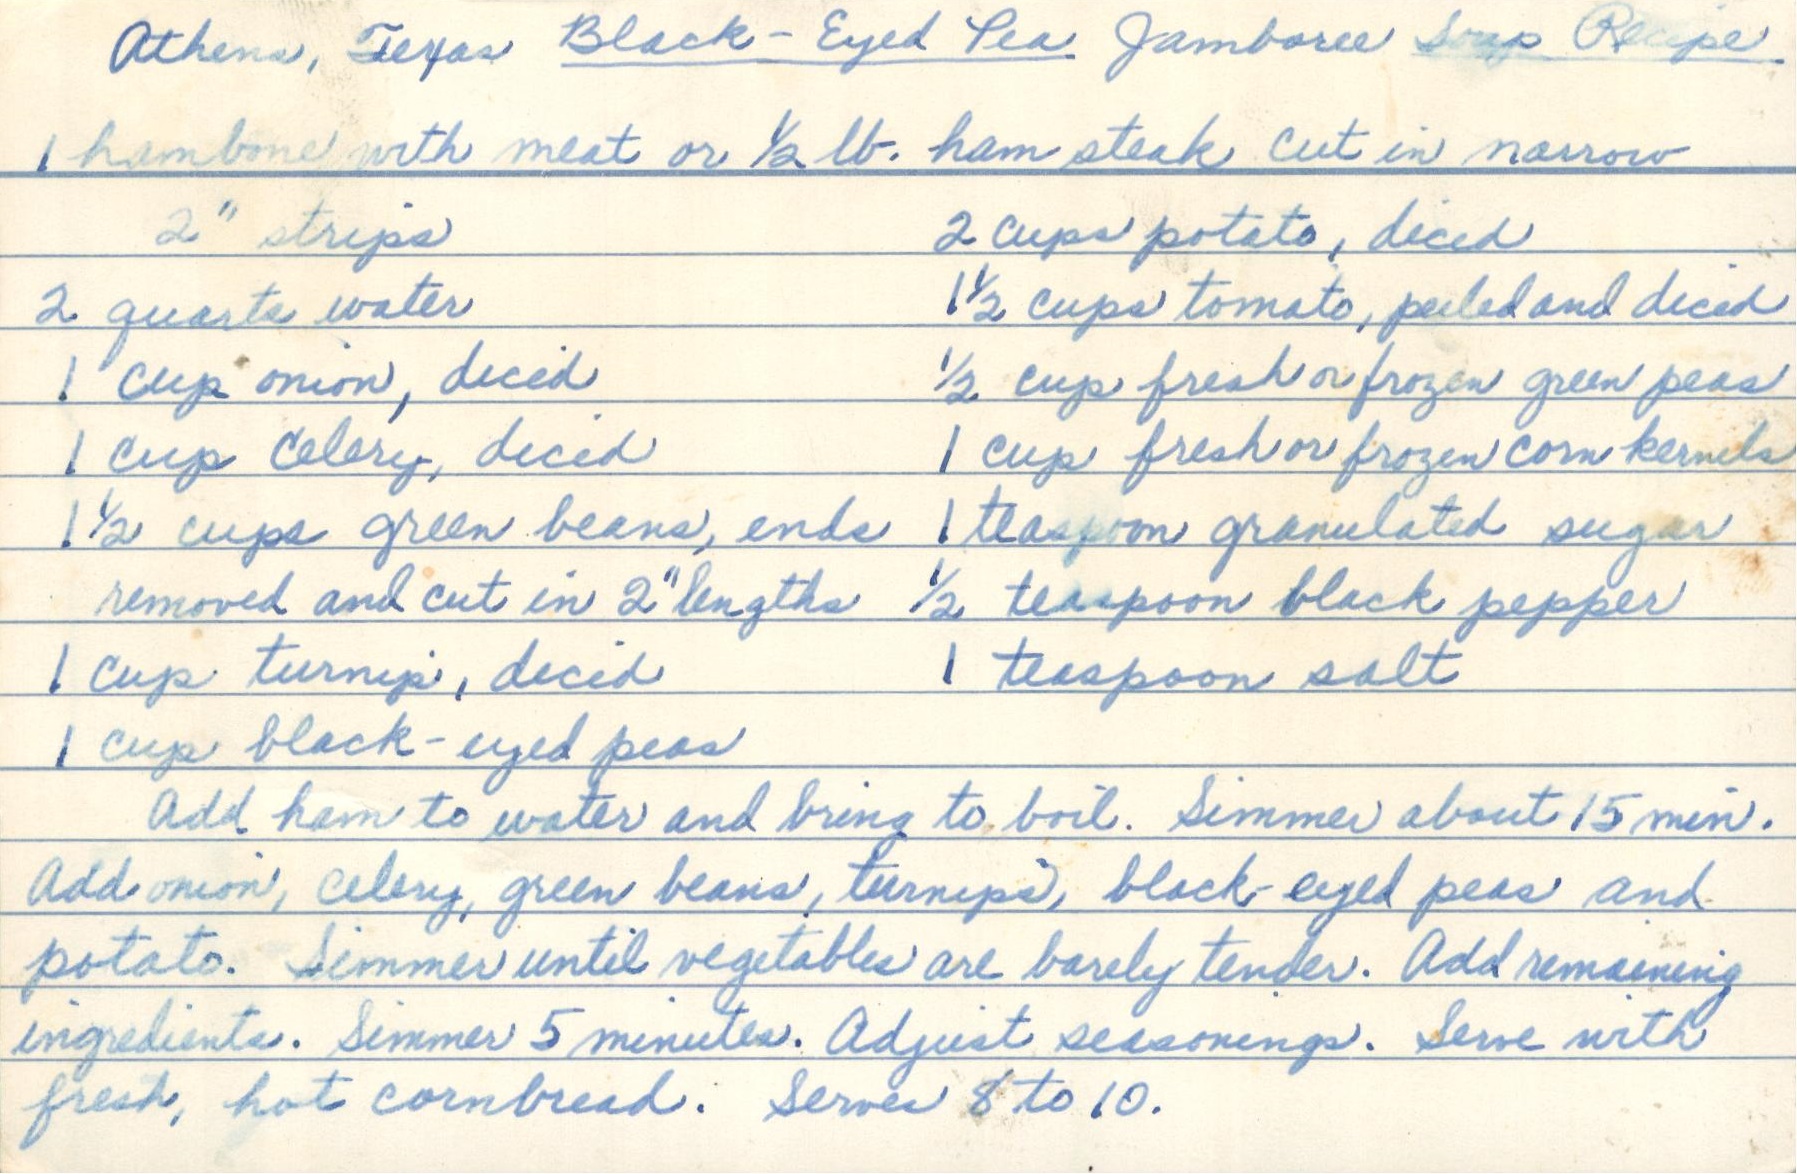 Athens, Texas Black-Eyed Pea Jamboree Soup Recipe
1 hambone with meat or 1/2 lb. ham steak cut in narrow
2" strips
2 quarts water
1 cup onion, diced
1 cup celery, diced
1 1/2 cups green beans, ends
removed and cut in 2" lengths
1 cup turnip, diced
1 cup black-eyed peas
2 cups potato, diced
1 1/2 cups tomato, peeled and diced
1/2 cup fresh or frozen green peas
1 cup fresh or frozen corn kernels
1 teaspoon granulated sugar
1/2 teaspoon black pepper
1 teaspoon salt
Add ham to water and bring to boil. Simmer about 15 min.
Add onion, celery, green beans, turnips, black-eyed peas and
potato. Simmer until vegetables are barely tender. Add remaining
ingredients. Simmer 5 minutes. Adjust seasonings. Serve with
fresh, hot cornbread. Serves 8 to 10.